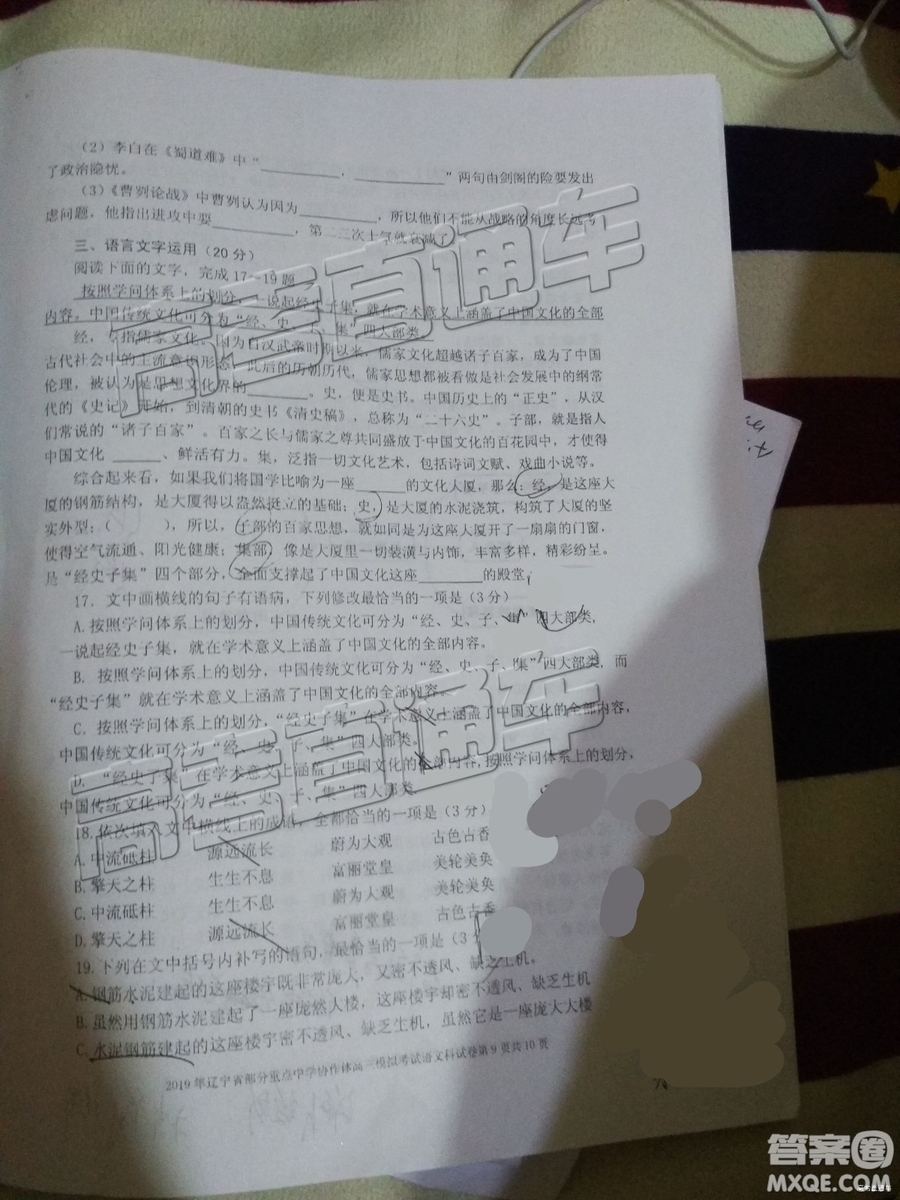 （2）李白在《蜀道难》中“____________，____________”两句由剑阁的险要发出
了政治隐忧。
（3）《曹刿论战》中曹刿认为因为__________，所以他们不能从战略的角度长远考
虑问题，他指出进攻中要__________，第二三次士气就衰减了
三、语言文字运用（20分）
阅读下面的文字，完成17～19题
按照学问体系上的划分，一说起经史子集，就在学术意义上涵盖了中国文化的全部
内容。中国传统文化可分为“经、史、子、集”四大部类
经，专指儒家文化。因为自汉武帝时所以来，儒家文化超越诸子百家，成为了中国
古代社会中的主流意识形态。此后的历朝历代，儒家思想都被看做是社会发展中的纲常
伦理，被认为是思想文化界的________。史，便是史书。中国历史上的“正史”，从汉
代的《史记》开始，到清朝的史书《清史稿》，总称为“二十六史”。子部，就是指人
们常说的“诸子百家”。百家之长与儒家之尊共同盛放于中国文化的百花园中，才使得
中国文化 ______、鲜活有力。集，泛指一切文化艺术，包括诗词文赋、戏曲小说等。
综合起来看，如果我们将国学比喻为一座______的文化大厦，那么：经，是这座大
厦的钢筋结构，是大厦得以盎然挺立的基础；史，是大厦的水泥浇筑，构筑了大厦的竖
实外型；（ ），所以，子部的百家思想，就如同是为这座大厦开了一扇扇的门窗，
使得空气流通、阳光健康；集部，像是大厦里一切装潢与内饰，丰富多样，精彩纷呈。
是“经史子集”四个部分，全面支撑起了中国文化这座________的殿堂；
17．文中画横线的句子有语病，下列修改最恰当的一项是（3分）
A．按照学问体系上的划分，中国传统文化可分为“经、史、子、集”四大部类，
一说起经史子集，就在学术意义上涵盖了中国文化的全部内容。
B. 按照学问体系上的划分，中国传统文化可分为“经、史、子、集”四大部类，而
“经史子集”就在学术意义上涵盖了中国文化的全部内容。
C. 按照学问体系上的划分，“经史子集”在学术意义上涵盖了中国文化的全部内容，
中国传统文化可分为“经、史、子、集”四大部类。
D. “经史子集”在学术意义上涵盖了中国文化的全部内容，按照学问体系上的划分，
中国传统文化可分为“经、史、子、集”四大部类
18．依次填入文中横线上的成语，全都恰当的一项是（3分）
A.中流砥柱 源远流长 蔚为大观 古色古香
B.擎天之柱 生生不息 富丽堂皇 美轮美奂
C.中流砥柱 生生不息 蔚为大观 美轮美奂
D.擎天之柱 源远流长 富丽堂皇 古色古香
19．下列在文中括号内补写的语句，最恰当的一项是（3分
A.钢筋水泥建起的这座楼宇既非常庞大，又密不透风、缺乏生机，
B.虽然用钢筋水泥建起了一座庞然大楼，这座楼宇却密不透风、缺乏生机
C.水泥钢筋建起的这座楼宇密不透风、缺乏生机，虽然它是一座庞大大楼
2019年辽宁省部分重点中学协作体高三模拟考试语文科试卷第9页共10页
高考直通车
高考直通车
答案圈
MXQE.COM